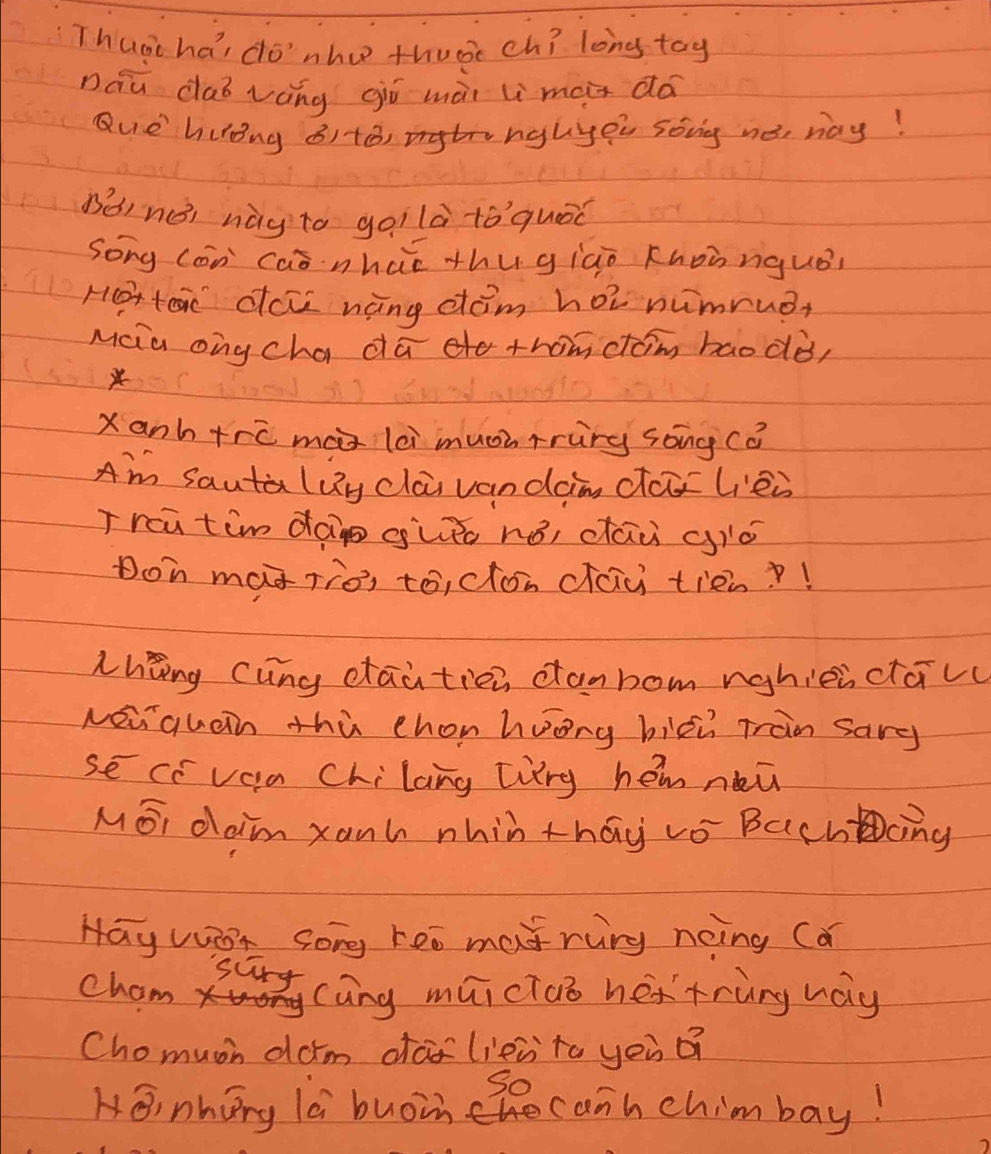 Thuộc hải đồ như thuộc chỉ lòng tay
Dẫu đảo vắng gió mài lì mặt đá
Quê hương ơi, tôi nguyện sống nơi này!
Bởi nơi này ta gọi là tổ quốc
Sóng cồn cào nhắc thuở giáo khoan người
Một tấc đất nặng đằm hơi núm ruột
Máu ông cha đã thấm đẫm bao đời
*
Xanh trên mặt là muôn trùng sóng cả
Ẩn sâu ta lũy dài vạn dặm đất liền
Trái tim đập giữa nơi đầu gió
Đón mặt trời tôi đón đầu tiên!
Nhưng cũng đầu tiên đạn bom nghiến đá
Nếu quân thù chọn hướng biển tràn sang
Sẽ có vạn Chi Lăng từng hẻm núi
Mỗi dặm xanh nhìn thấy võ Bạch Đằng
Hãy vượt sóng reo mặt rừng nàng Cá
Chạm súng cùng mũi đảo hết trùng vây
Cho muôn dặm đất liền ta yên ả
Hỡi những lá buồm so cánh chim bay!